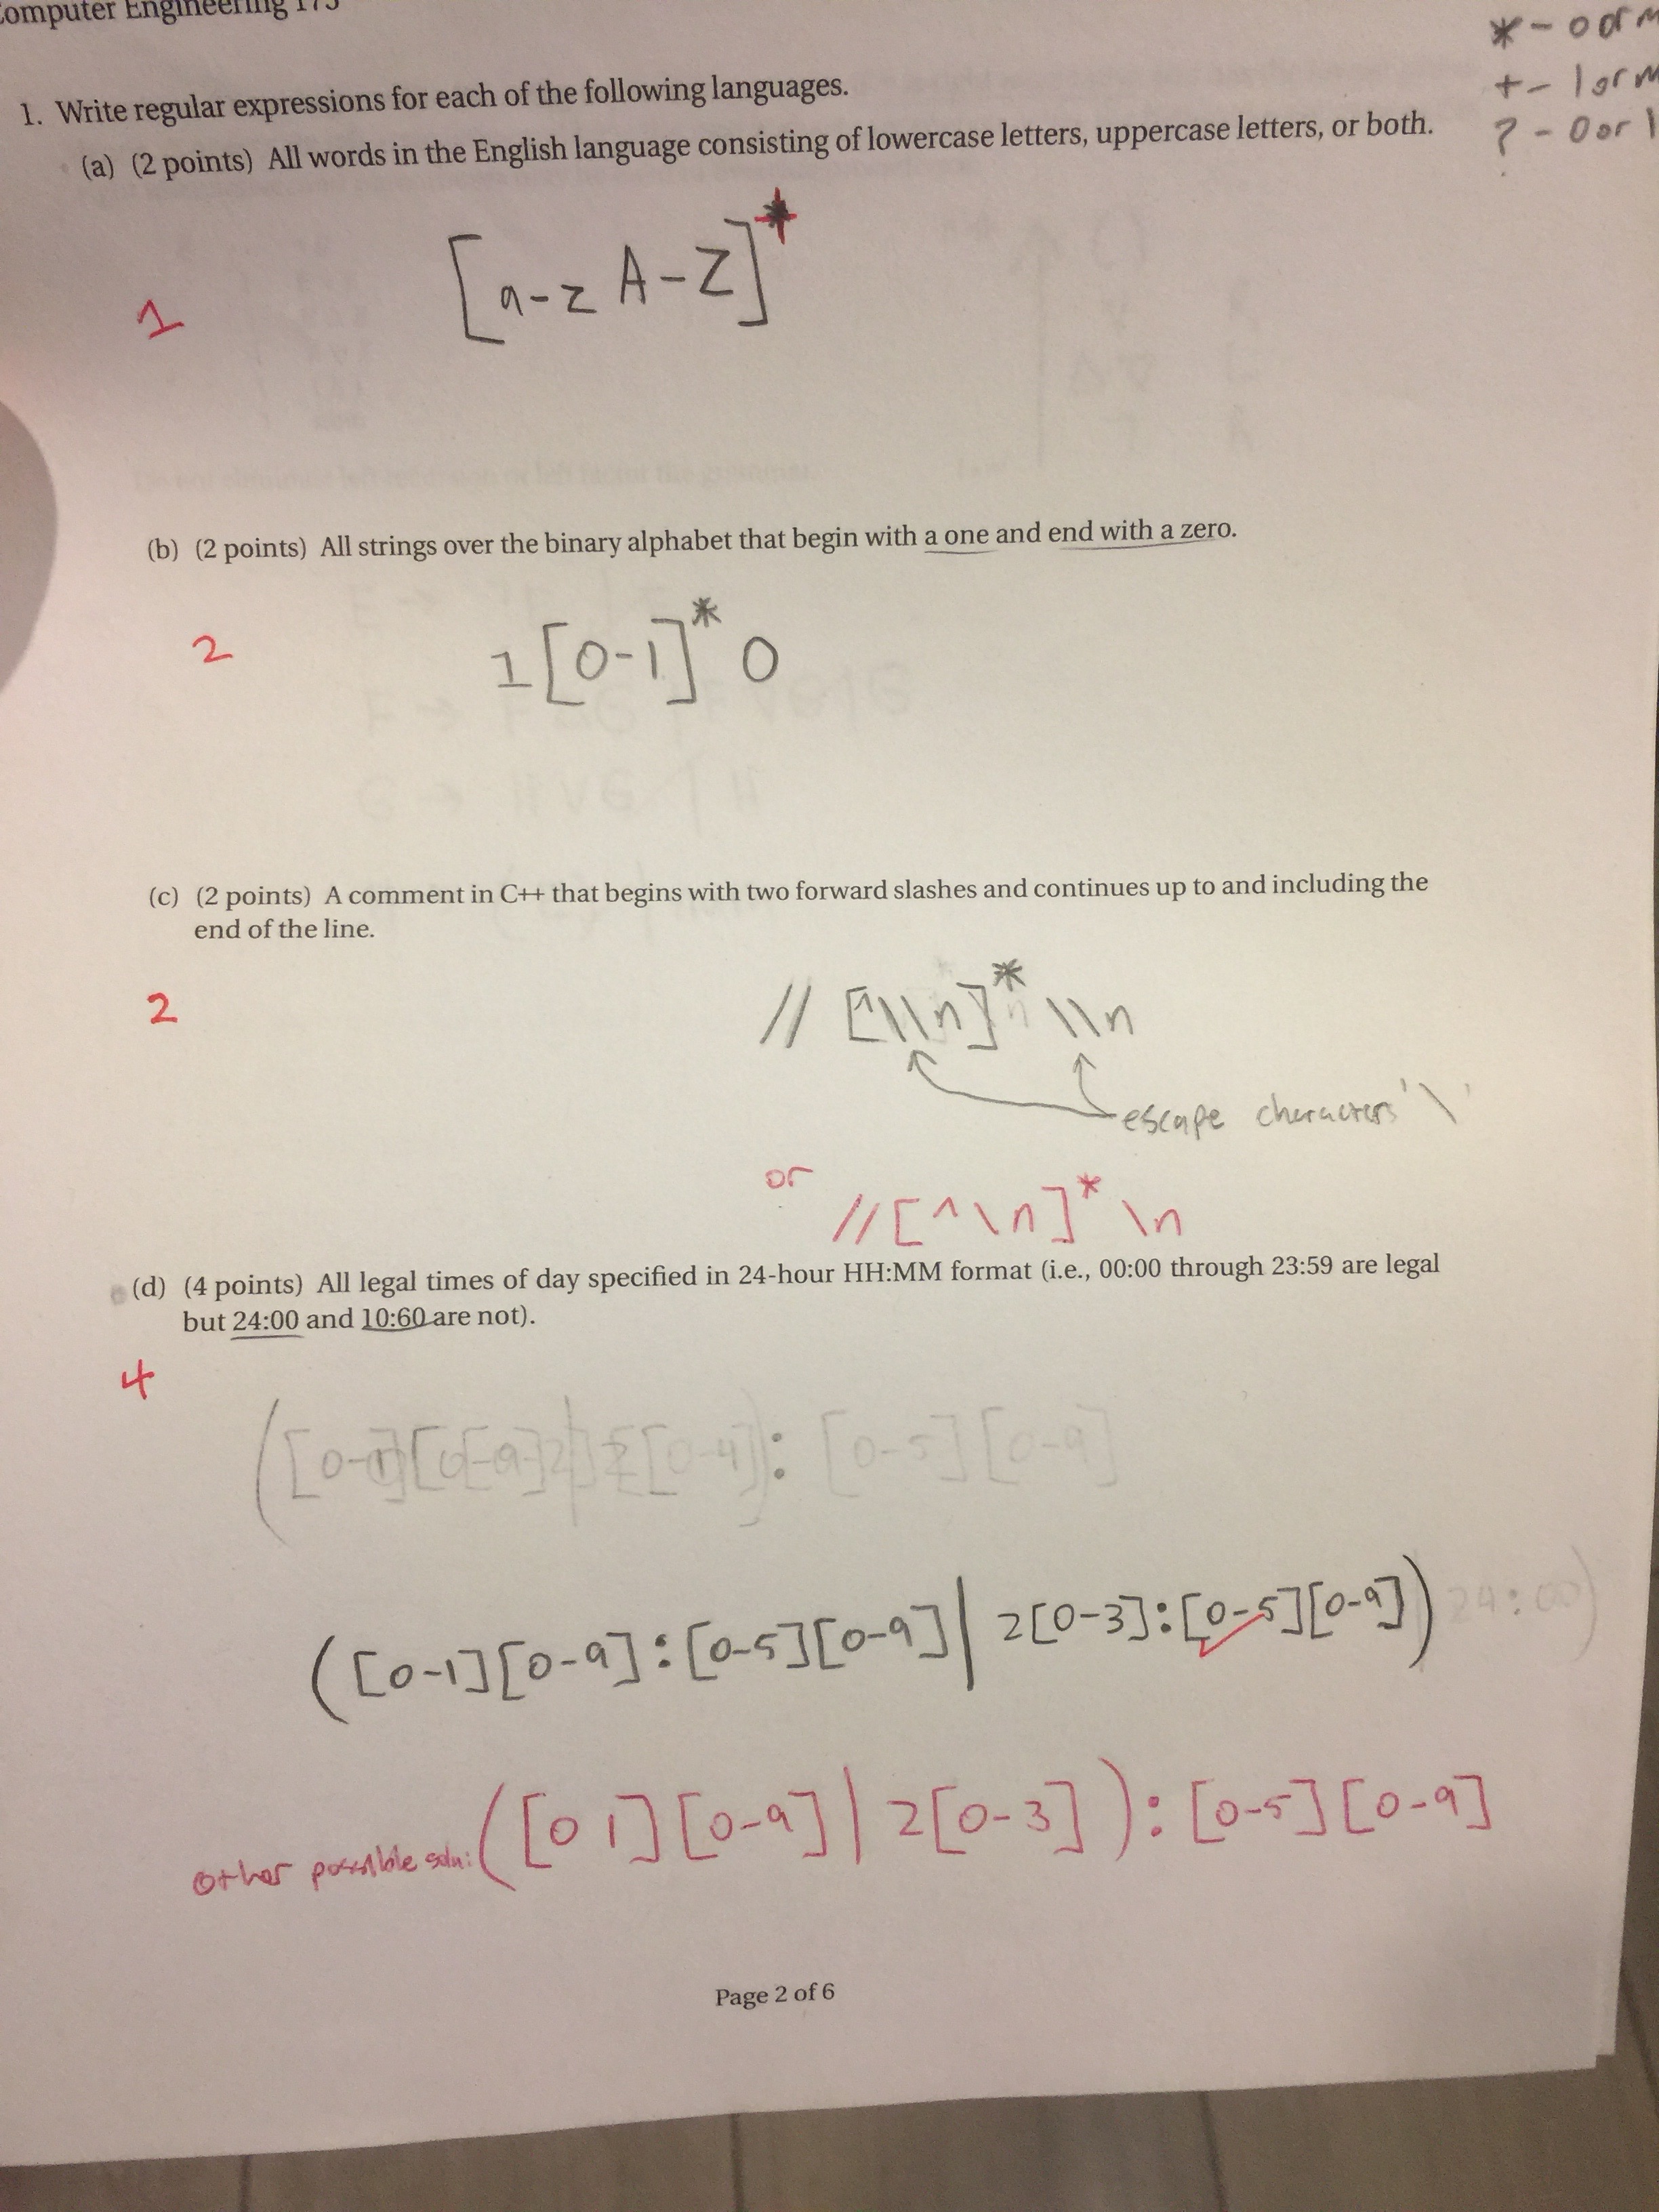 Computer Engineering 173
* - 0 or m
+ - 1 or m
? - 0 or 1
1. Write regular expressions for each of the following languages.
(a) (2 points) All words in the English language consisting of lowercase letters, uppercase letters, or both.
1
[a-z A-Z]+
(b) (2 points) All strings over the binary alphabet that begin with a one and end with a zero.
2
1[0-1]*0
(c) (2 points) A comment in C++ that begins with two forward slashes and continues up to and including the
end of the line.
2
// [^\\n]* \\n
escape characters '\'
or
//[^\n]* \n
(d) (4 points) All legal times of day specified in 24-hour HH:MM format (i.e., 00:00 through 23:59 are legal
but 24:00 and 10:60 are not).
4
: [0-5][0-9]
([0-1][0-9]:[0-5][0-9]|2[0-3]:[0-5][0-9]) 24:00)
other possible soln: ([01][0-9]|2[0-3]):[0-5][0-9]
Page 2 of 6